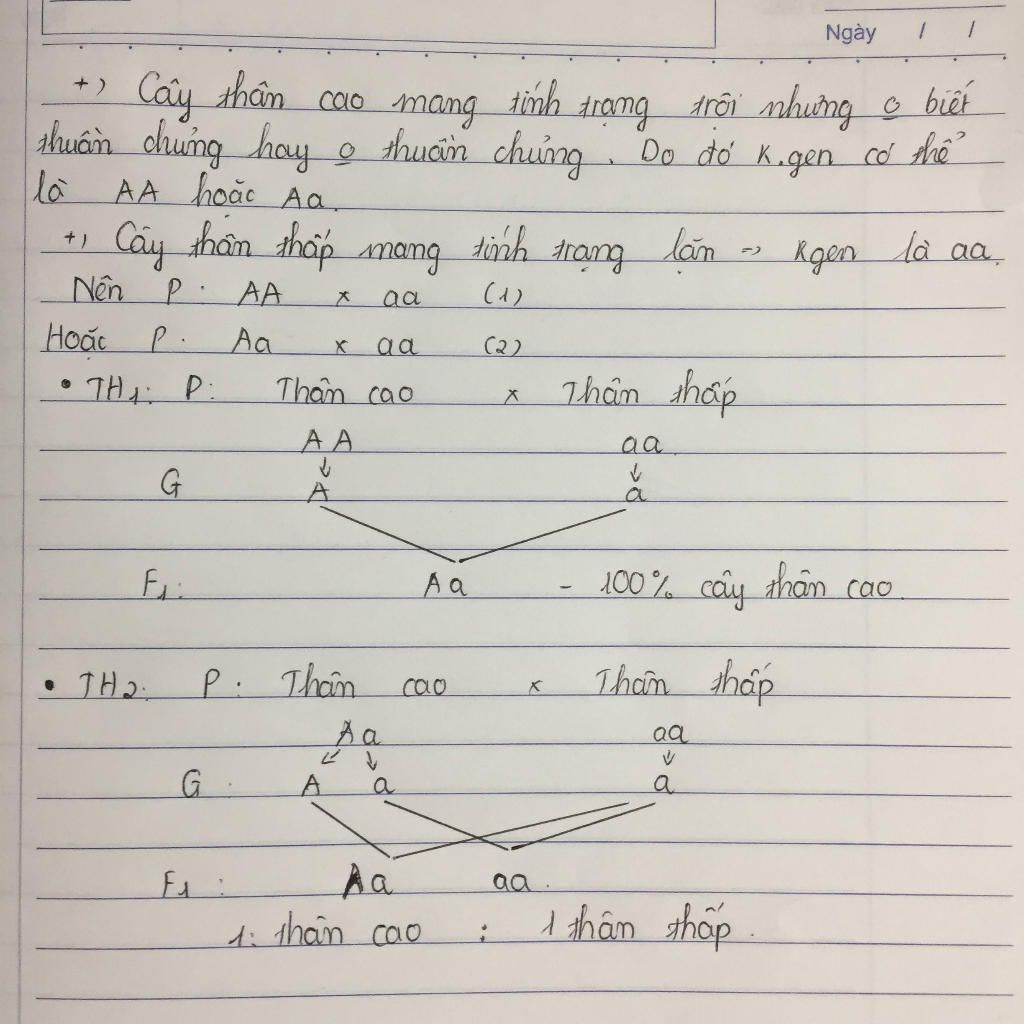 Ngày / /
+) Cây thân cao mang tính trạng trội nhưng o biết
thuần chủng hay o thuần chủng. Do đó K.gen có thể
là AA hoặc Aa.
+) Cây thân thấp mang tính trạng lặn → Kgen là aa.
Nên P: AA x aa (1)
Hoặc P: Aa x aa (2)
• TH1: P: Thân cao x Thân thấp
AA aa
G A a
F1: Aa - 100% cây thân cao.
• TH2: P: Thân cao x Thân thấp
Aa aa
G: A a a
F1: Aa aa.
1: thân cao : 1 thân thấp.